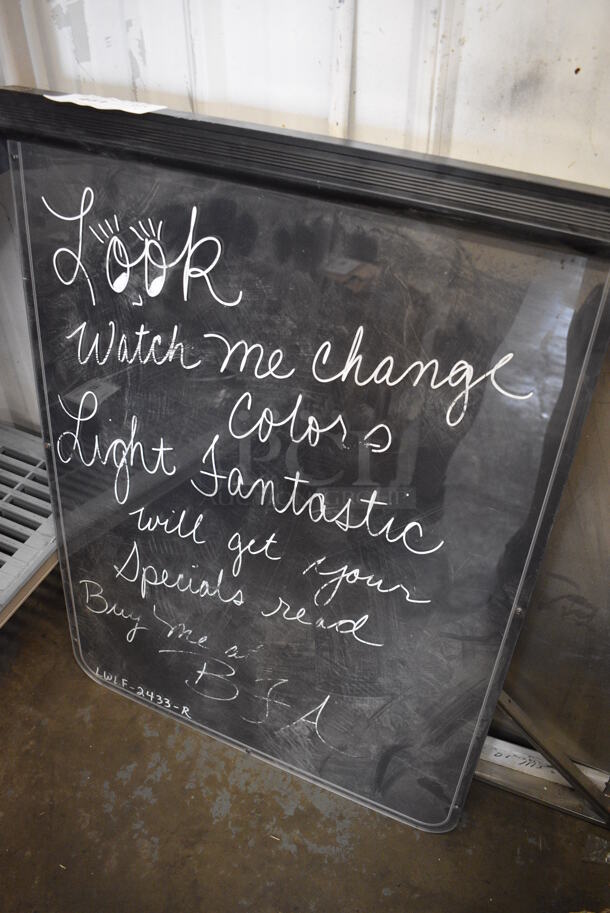 Look
Watch me change
Colors
Light Fantastic
will get your
Specials read
Buy me at
B F A
LWLF-2433-R